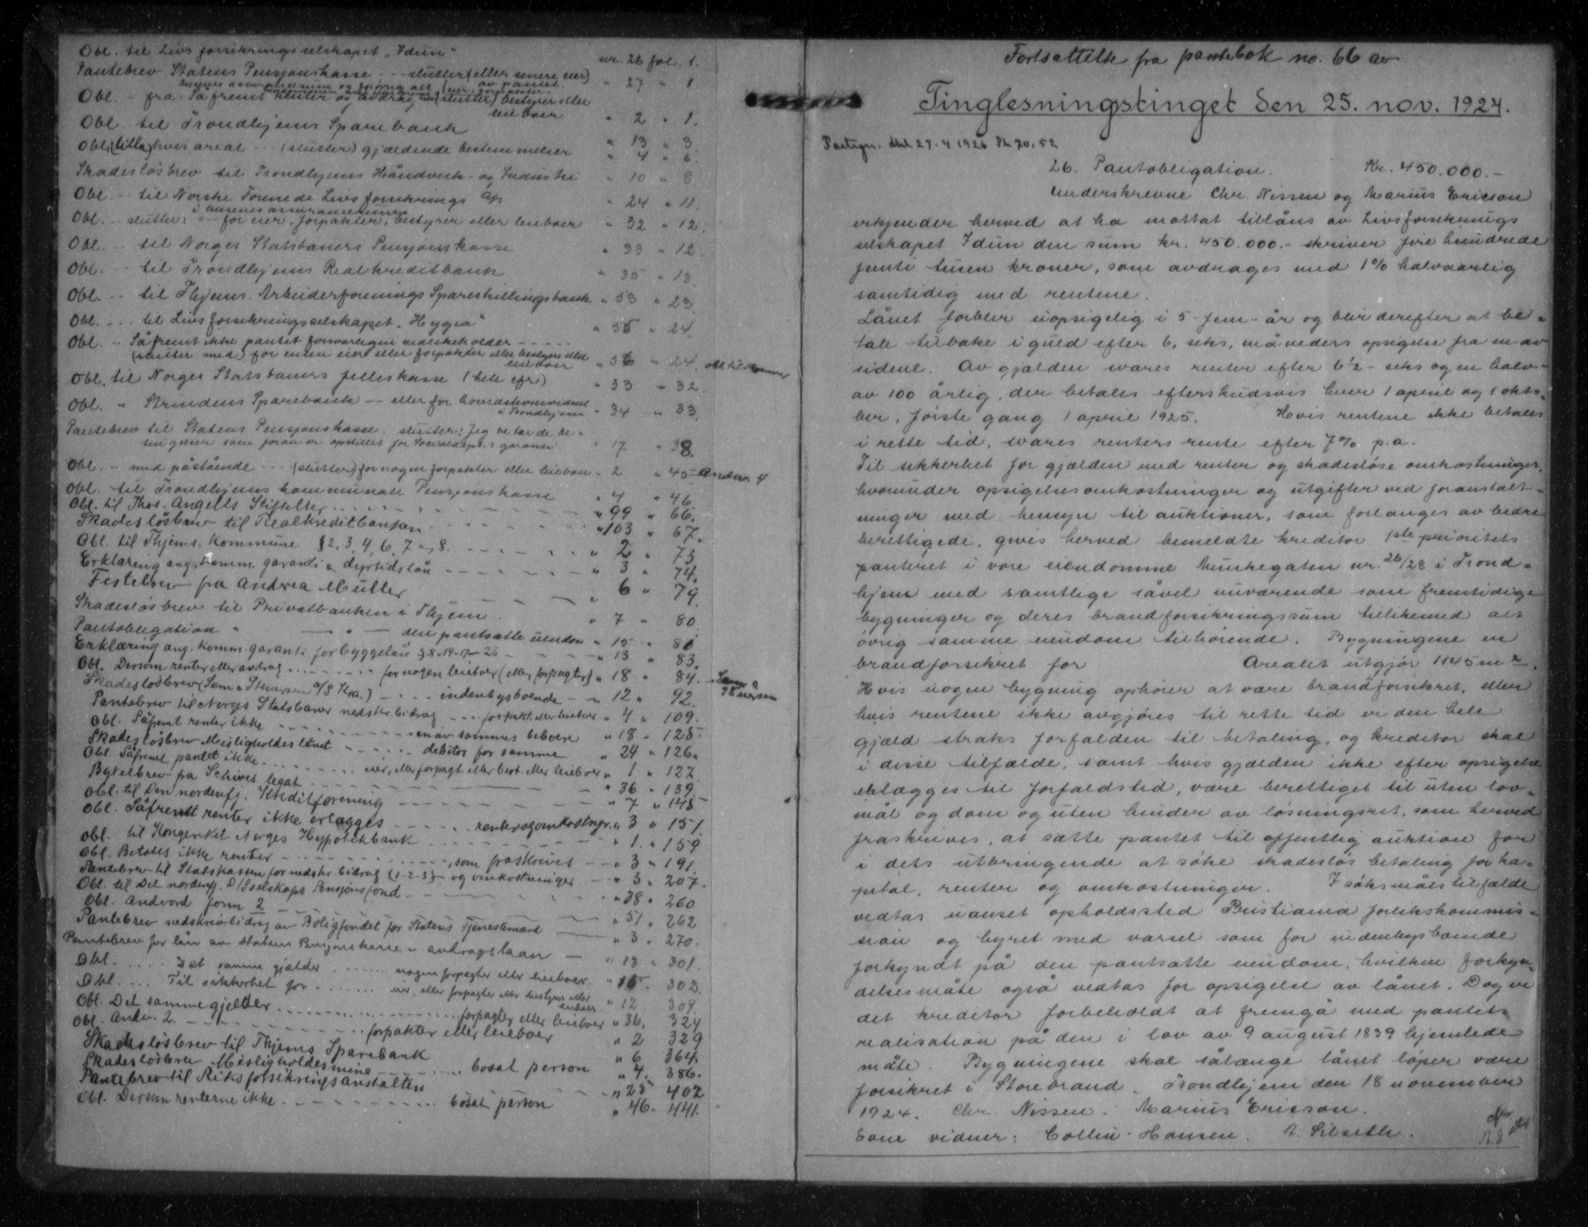 Obl. til Livsforsikringsselskapet "Idun" nr. 26 fol. 1.
Pantebrev Statens Pensjonskasse -- slutter (eller senere eier) " 27 " 1.
Obl. - fra: Såfremt renter og avdrag (slutter) bestyrer eller leieboer
Obl. til Trondhjems Sparebank " 2 " 1.
Obl. (tillæg) hvis areal --- (slutter) gjældende bestemmelser " 13 " 3.
" 4 " 6.
Skadesløsbrev til Trondhjems Håndverk- og Industri " 10 " 8.
Obl. -- til Norske Forenede Livsforsikrings A/s " 24 " 11.
Obl. -- slutter: -- for eier, forpakter, bestyrer eller leieboer " 32 " 12.
Obl. -- til Norges Statsbaners Pensjonskasse " 33 " 12.
Obl. -- til Trondhjems Realkreditbank " 35 " 13.
Obl. -- til Thjems. Arbeiderforenings Spareskillingsbank " 33 " 23.
Obl. --- til Livsforsikringsselskapet "Hygea" " 55 " 24.
Obl. -- Såfremt ikke pantet forsvarligen vedlikeholdes -----
(slutter med) for enhver eier eller forpakter eller bestyrer eller leieboer " 36 " 24.
Obl. til Norges Statsbaners felleskasse (hele eier) " 33 " 32.
Obl. " Strindens Sparebank -- eller for hovedstevnevidnet i Trondhjem " 34 " 33.
Pantebrev til Statens Pensjonskasse. slutter: Jeg vedtar de be-
tingelser som foran er opstillet for garanti. " 17 " 38.
Obl. - med påstående --- (slutter) for nogen forpakter eller leieboer - 2 " 45 - Anderv. 4
Obl. til Trondhjems kommunale Pensjonskasse " 4 " 46.
Obl. til Thos. Angells Stiftelser " 99 " 66.
Skadesløsbrev til Realkreditbanken " 103 " 67.
Obl. til Thjems. Kommune § 2, 3, 4, 6, 7 og 8. " 2 " 73
Erklæring ang. komm. garanti a dyrtidslån " 3 " 74.
Festebrev fra Andrea Müller " 6 " 79.
Skadesløsbrev til Privatbanken i Thjem. " 7 " 80.
Pantobligation " — " — den pantsatte eiendom " 15 " 81
Erklæring ang. Komm. garanti for byggelån " 13 " 83.
Obl. Dersom renter eller avdrag ........ for nogen leieboer (eller forpagter) " 18 " 84.
Skadesløsbrev (Sem & Stenersen A/S Kra.) - - - indenbysboende " 12 " 92.
Pantebrev til Norges Statsbaner nedskr. bidrag .... forpakt. eller leieboer " 4 " 109.
Obl. Såfremt renter ikke ........ en av sammes beboere " 18 " 125.
Skadesløsbrev Misligholdes lånet - - - - debitor for samme " 24 " 126.
Obl. Såfremt pantet ikke ......... eier, eller forpagt. eller best. eller leieboer " 1 " 127.
Bytelbrev fra Schives legat " 36 " 139
Obl. til Den nordenfj. Kreditforening " 7 " 145
Obl. Såfremt renter ikke erlægges ---- renter og omkostngr. " 3 " 151.
Obl. til Kongeriket Norges Hypotekbank " 1. " 159
Obl. Betales ikke renter -------, som fraskrives " 3 " 191.
Pantebrev til Statskassen for nedskr. bidrag (1-2-3) - og omkostninger " 3. " 207.
Obl. til Det nordenfj. D/Selskaps Pensjonsfond " 28 " 260
Obl. Andvord form 2 " 51 " 262
Pantebrev nedskrivn. bidrag av Boligfondet for Statens Tjenestemænd " 3 " 270.
Pantebrev for lån av Statens Pensjonskasse - avdragslaan " 13 " 301.
Obl. ..... Det samme gjelder ....... nogen forpagter eller leieboer. " 15 " 302
Obl. .... Til sikkerhet for ........ eier, eller forpagter eller bestyrer eller leieboer. " 12. 309.
Obl. Det samme gjelder ........ forpagter eller leieboer " 36. 324
Obl. Anderv. 2. ------- forpakter eller leieboer " 2 329
Skadesløsbrev til Thjems Sparebank " 6 364.
Skadesløsbrev Misligholdes mine ........ bosat person " 4. 386.
Pantebrev til Riksforsikringsanstalten " 25 402
Obl. Dersom renterne ikke .......... bosat person " 46 - 441.
Fortsættelse fra pantebok no. 66 av
Tinglesningstinget den 25. nov. 1924.
26. Pantobligation. Kr. 450.000.-
Underskrevne Chr. Nissen og Marius Ericson
erkjender herved at ha mottat tillåns av Livsforsikrings
selskapet Idun den sum kr. 450.000.- skriver fire hundrede
femti tusen kroner, som avdrages med 1% halvaarlig
samtidig med rentene.
Lånet forblir uopsigelig i 5 - fem - år og blir derefter at be-
tale tilbake i guld efter 6, seks, måneders opsigelse fra en av
sidene. Av gjælden svares renter efter 6½ - seks og en halv -
av 100 årlig, der betales efterskudsvis hver 1 april og 1 okto-
ber, første gang 1 april 1925. Hvis rentene ikke betales
i rette tid, svares renters rente efter 7% p.a.
Til sikkerhet for gjælden med renter og skadesløse omkostninger,
hvorunder opsigelsesomkostninger og utgifter ved foranstalt-
ninger med hensyn til auktioner, som forlanges av bedre
berettigede, gives herved bemeldte kreditor 1ste prioritets
panteret i vore eiendomme Munkegaten nr. 26/28 i Trond-
hjem med samtlige såvel nuværende som fremtidige
bygninger og deres brandforsikringssum tillikemed alt
øvrig samme eiendom tilhørende. Bygningene er
brandforsikret for Arealet utgjør 1145 m².
Hvis nogen bygning ophører at være brandforsikret, eller
hvis rentene ikke avgjøres til rette tid er den hele
gjæld straks forfalden til betaling, og kreditor skal
i disse tilfælde, samt hvis gjælden ikke efter opsigelse
erlægges til forfaldstid, være berettiget til uten lov-
mål og dom og uten hinder av løsningsret, som herved
fraskrives, at sætte pantet til offentlig auktion for
i dets utbringende at søke skadesløs betaling for ka-
pital, renter og omkostninger. I søksmålstilfælde
vedtas uanset opholdssted Kristiania forlikskommis-
sion og byret med varsel som for indenbysboende
forkyndt på den pantsatte eiendom, hvilken forkyn-
delsesmåte også vedtas for opsigelse av lånet. Dog er
det kreditor forbeholdt at fremgå med pantets
realisation på den i lov av 9 august 1839 hjemlede
måte. Bygningene skal sålænge lånet løper være
forsikret i Storebrand. Trondhjem den 18 november
1924. Chr. Nissen. Marius Ericson.
Som vidner: Collin-Hansen.